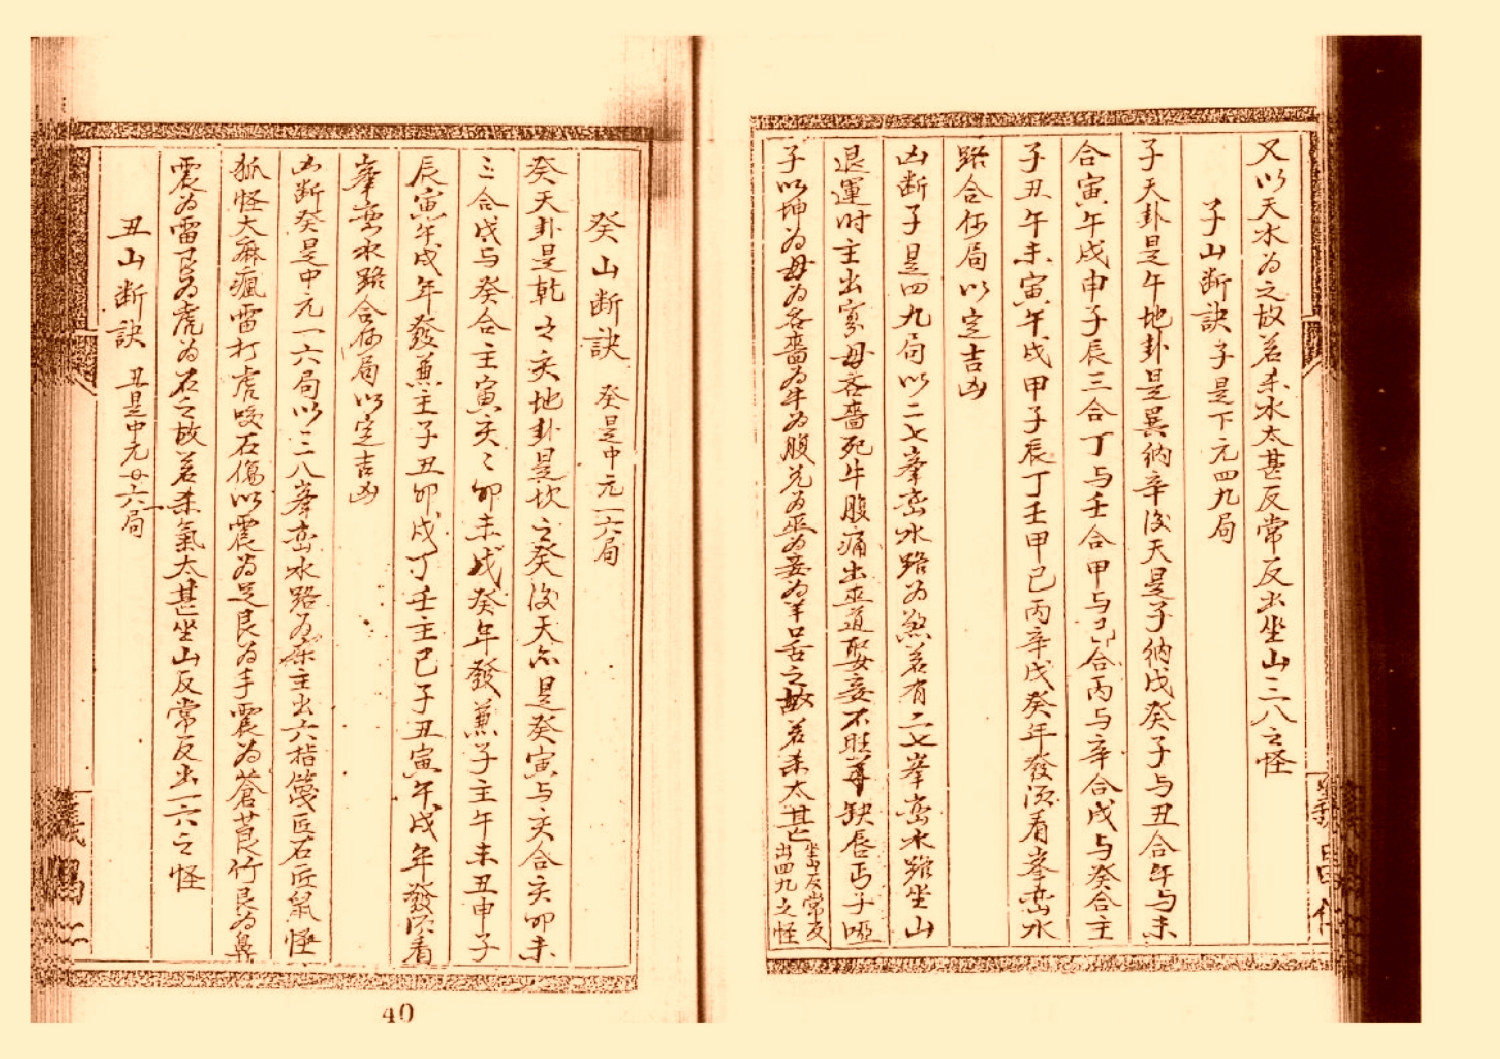 又以天水为之故若杀水太甚反常反出坐山三八之怪
子山断訣 子是下元四九局
子天卦是午地卦是巽納辛後天是子納戊癸子与丑合午与未
合寅午戌申子辰三合丁与壬合甲与己合丙与辛合戊与癸合主
子丑午未寅午戌甲子辰丁壬甲己丙辛戊癸年發須看峯巒水
路合何局以定吉凶
凶断子是四九局以二七峯巒水路为煞若有二七峯巒水路坐山
退運时主出寡母吝嗇死牛腹痛出巫道娶妾不旺尊缺唇丐子啞
子以坤为母为吝嗇为牛为腹兑为巫为妾为羊口舌之故若杀太甚坐山反常反
出四九之怪
癸山断訣 癸是中元一六局
癸天卦是乾之亥地卦是坎之癸後天亦是癸寅与亥合亥卯未
三合戌与癸合主寅亥亥卯未戌癸年發兼子主午未丑申子
辰寅午戌年發兼主子丑卯戌丁壬主巳子丑寅午戌年發須看
峯巒水路合何局以定吉凶
凶断癸是中元一六局以三八峯巒水路为杀主出六指篾匠石匠鼠怪
狐怪大麻瘋雷打虎咬石傷以震为足艮为手震为蒼莨竹艮为鼻
震为雷艮为虎为石之故若杀氣太甚坐山反常反出一六之怪
丑山断訣 丑是中元一六局
40